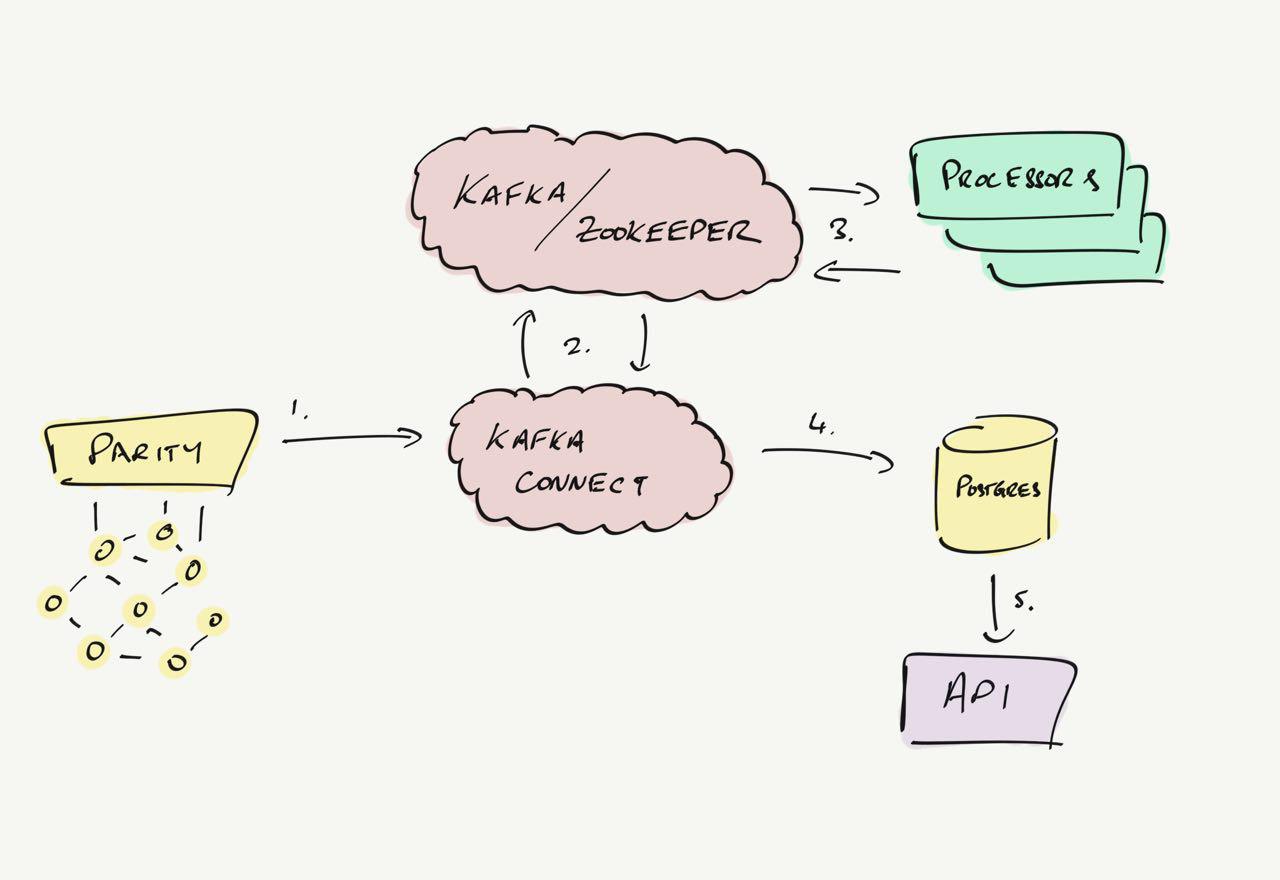 KAFKA/
ZOOKEEPER
PROCESSORS
3.
2.
1.
PARITY
KAFKA
CONNECT
4.
POSTGRES
5.
API